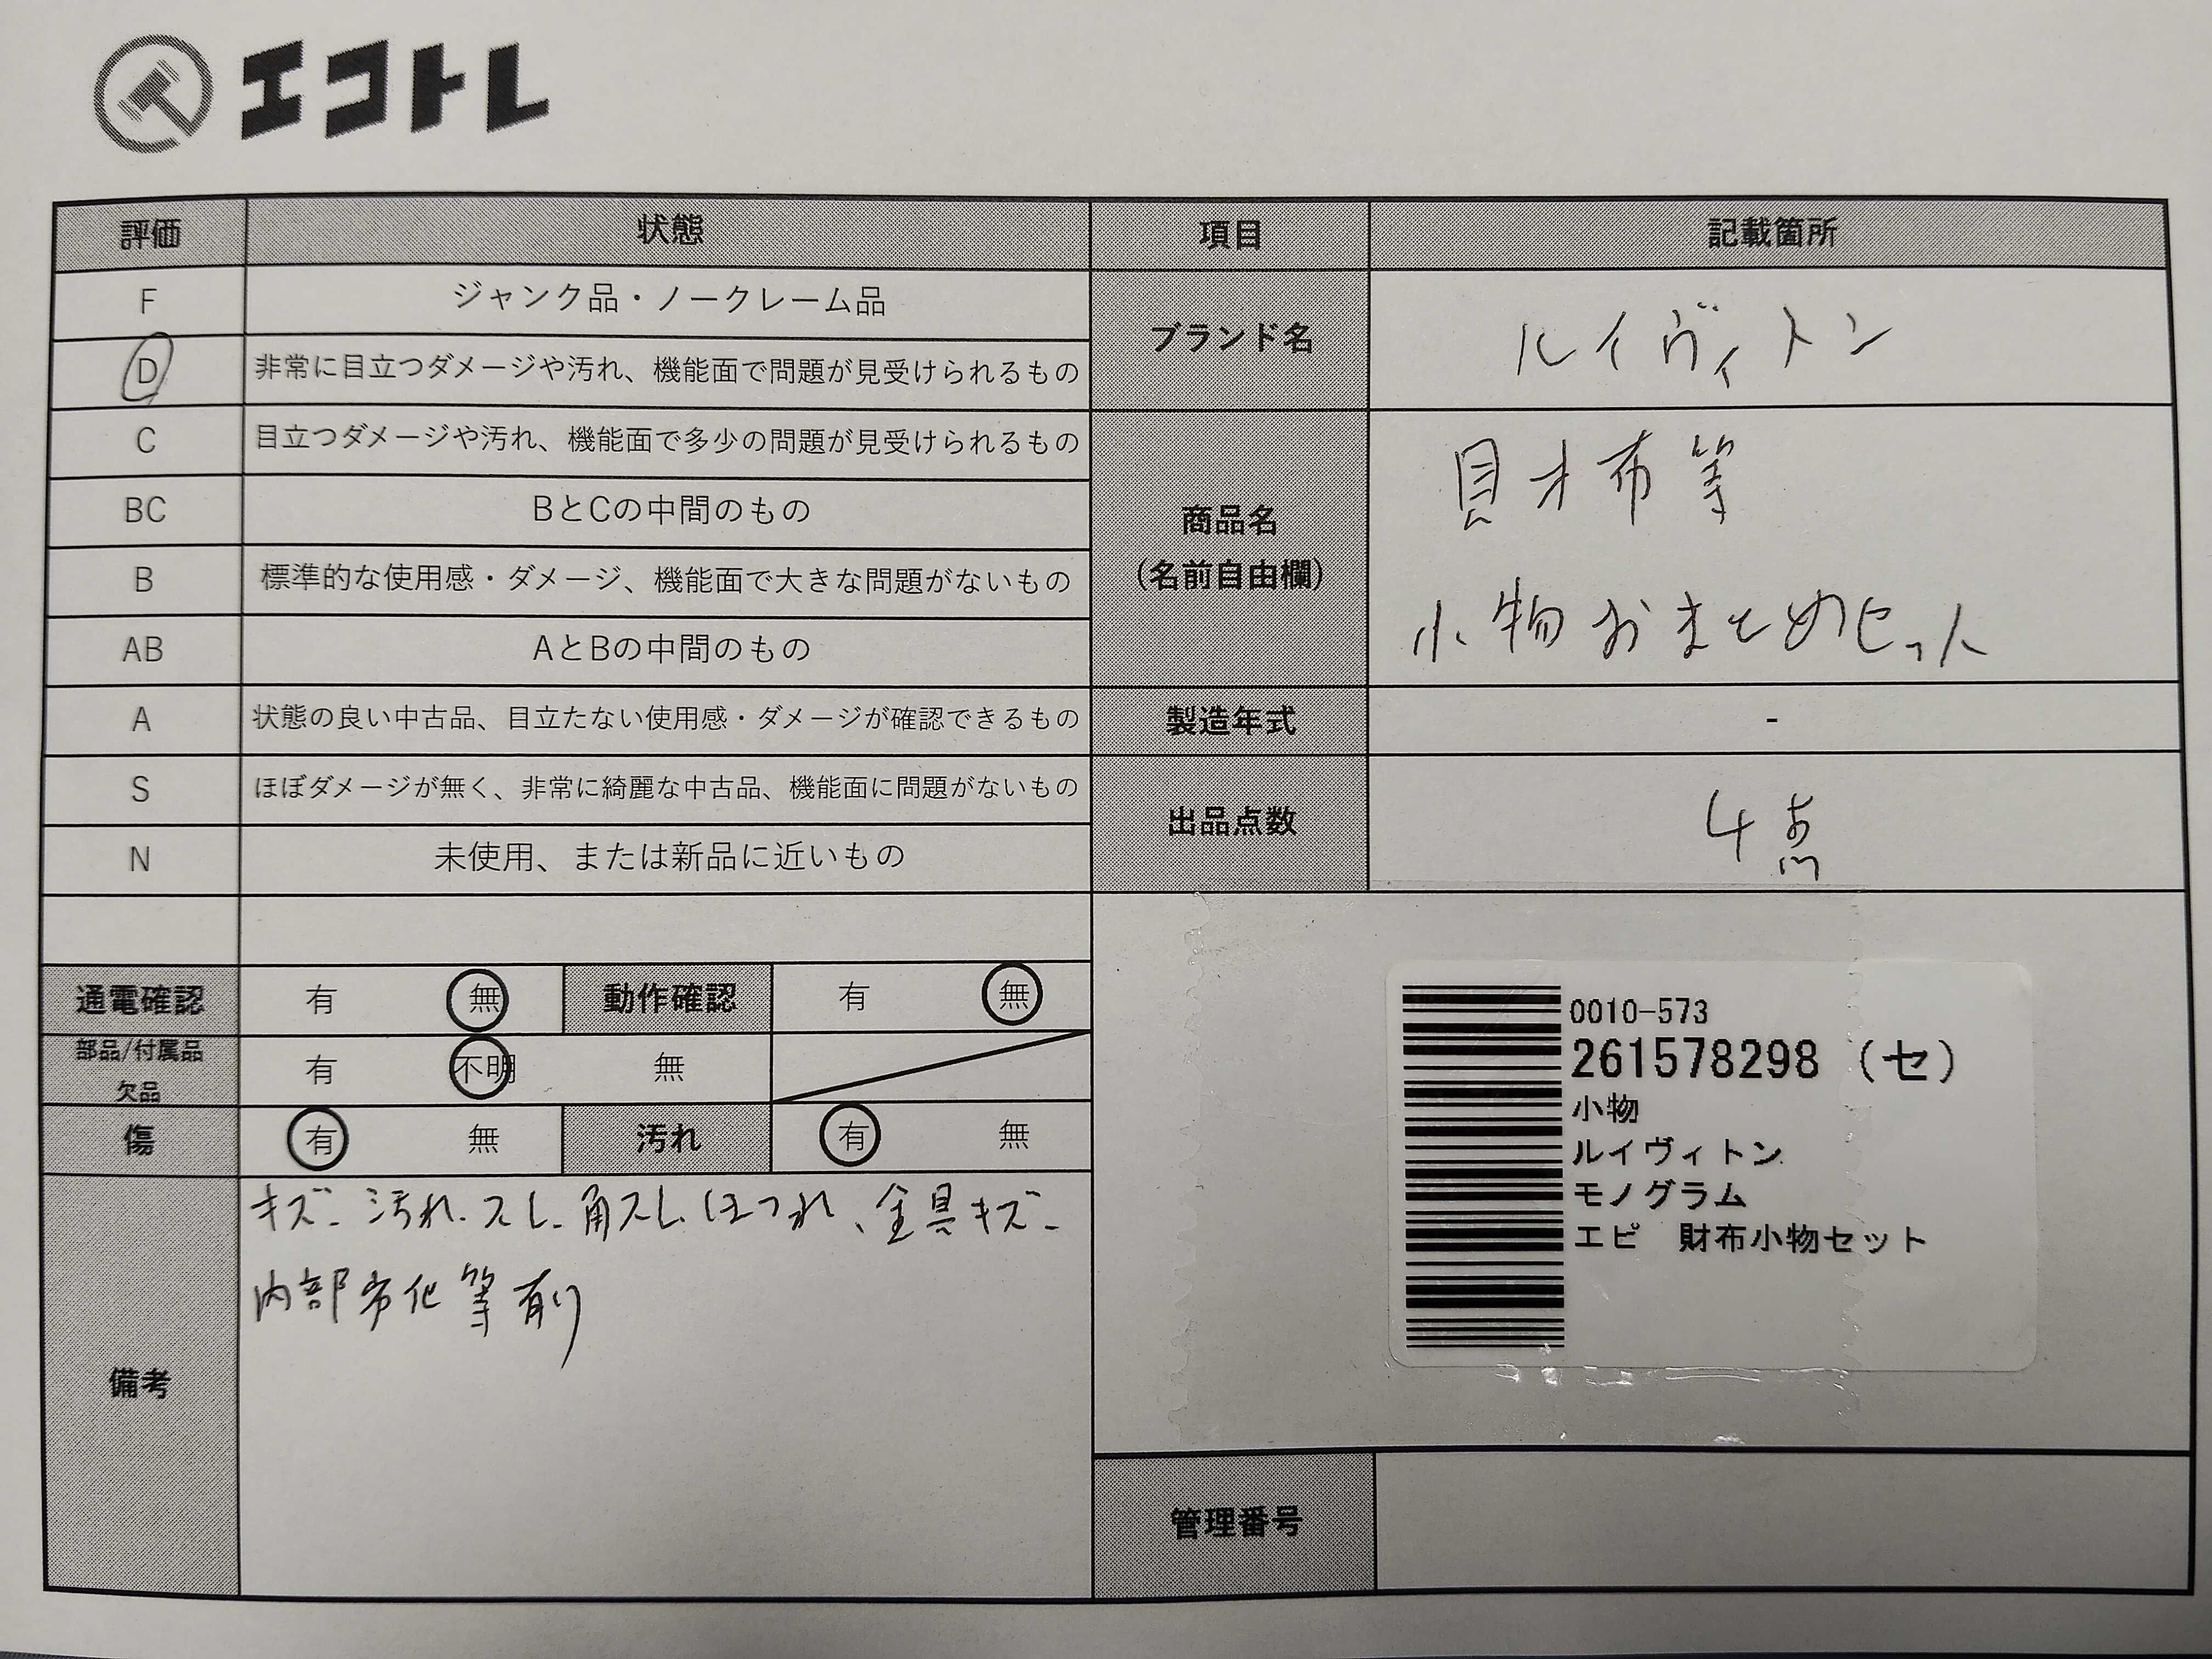 エコトレ
評価 状態 項目 記載箇所
F ジャンク品・ノークレーム品
D 非常に目立つダメージや汚れ、機能面で問題が見受けられるもの
ブランド名 ルイヴィトン
C 目立つダメージや汚れ、機能面で多少の問題が見受けられるもの
BC BとCの中間のもの
B 標準的な使用感・ダメージ、機能面で大きな問題がないもの
AB AとBの中間のもの
商品名
(名前自由欄)
財布等
小物おまとめセット
A 状態の良い中古品、目立たない使用感・ダメージが確認できるもの
製造年式 -
S ほぼダメージが無く、非常に綺麗な中古品、機能面に問題がないもの
N 未使用、または新品に近いもの
出品点数 4点
通電確認 有 無 動作確認 有 無
部品/付属品
欠品
有 不明 無
傷 有 無 汚れ 有 無
備考
キズ、汚れ、スレ、角スレ、ほつれ、金具キズ、
内部劣化等有り
0010-573
261578298 (セ)
小物
ルイヴィトン
モノグラム
エピ 財布小物セット
管理番号